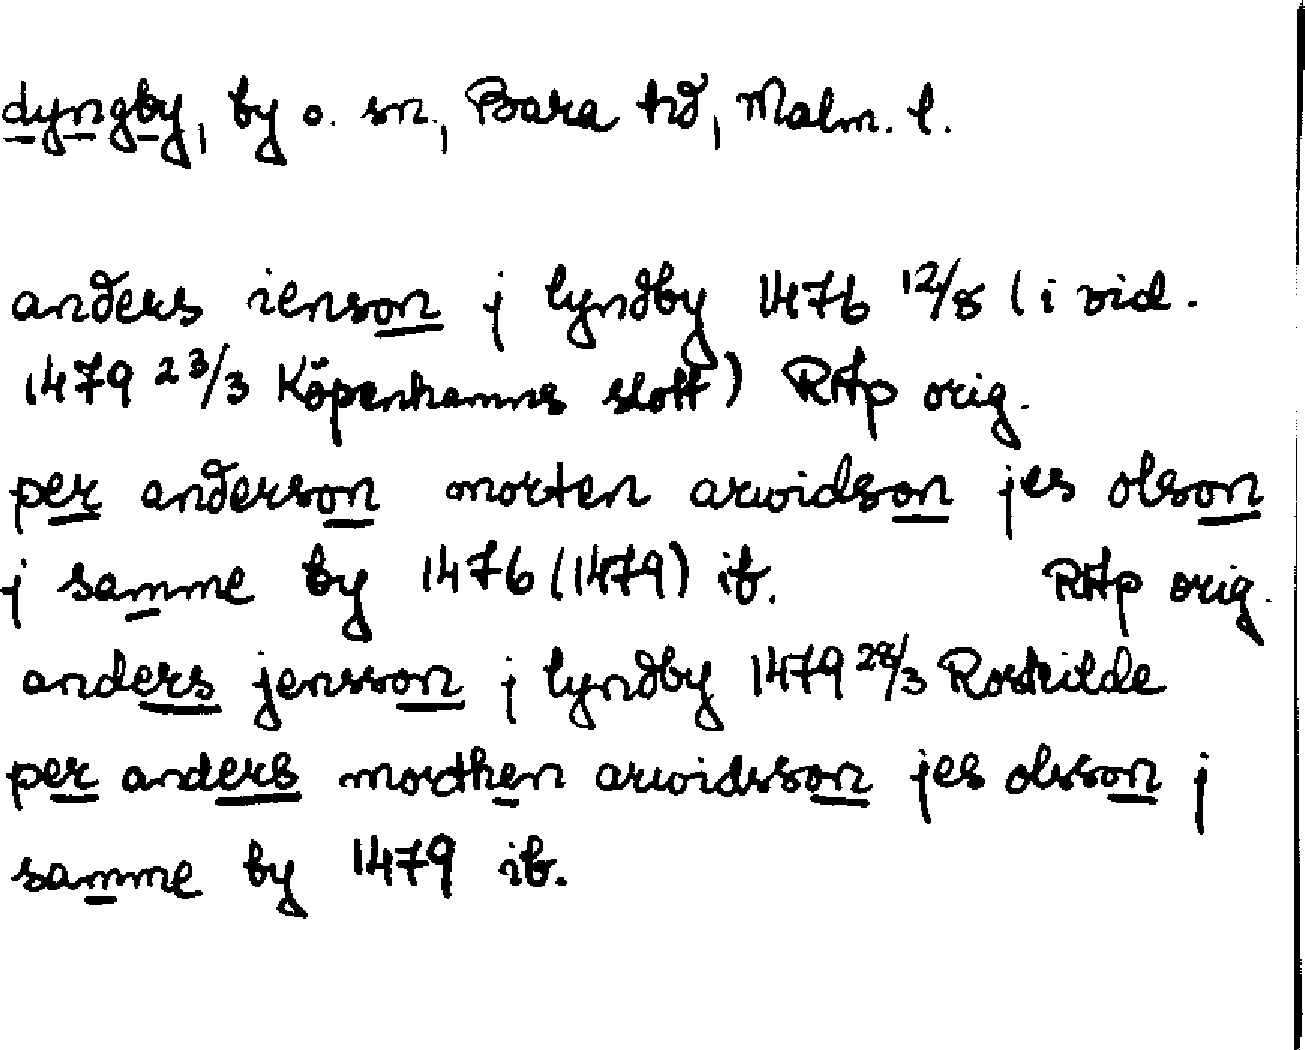 dyngby, by o. sn., Bara hd, Malm. l.
anders ienson j lyndby 1476 12/8 (i vid.
1479 23/3 Köpenhamns slott) RAp orig.
per anderson morten arwidson jes olson
j samme by 1476 (1479) ib. RAp orig.
anders jensson j lyndby 1479 28/3 Roskilde
per anders morthen arwidsson jes olsson j
samme by 1479 ib.